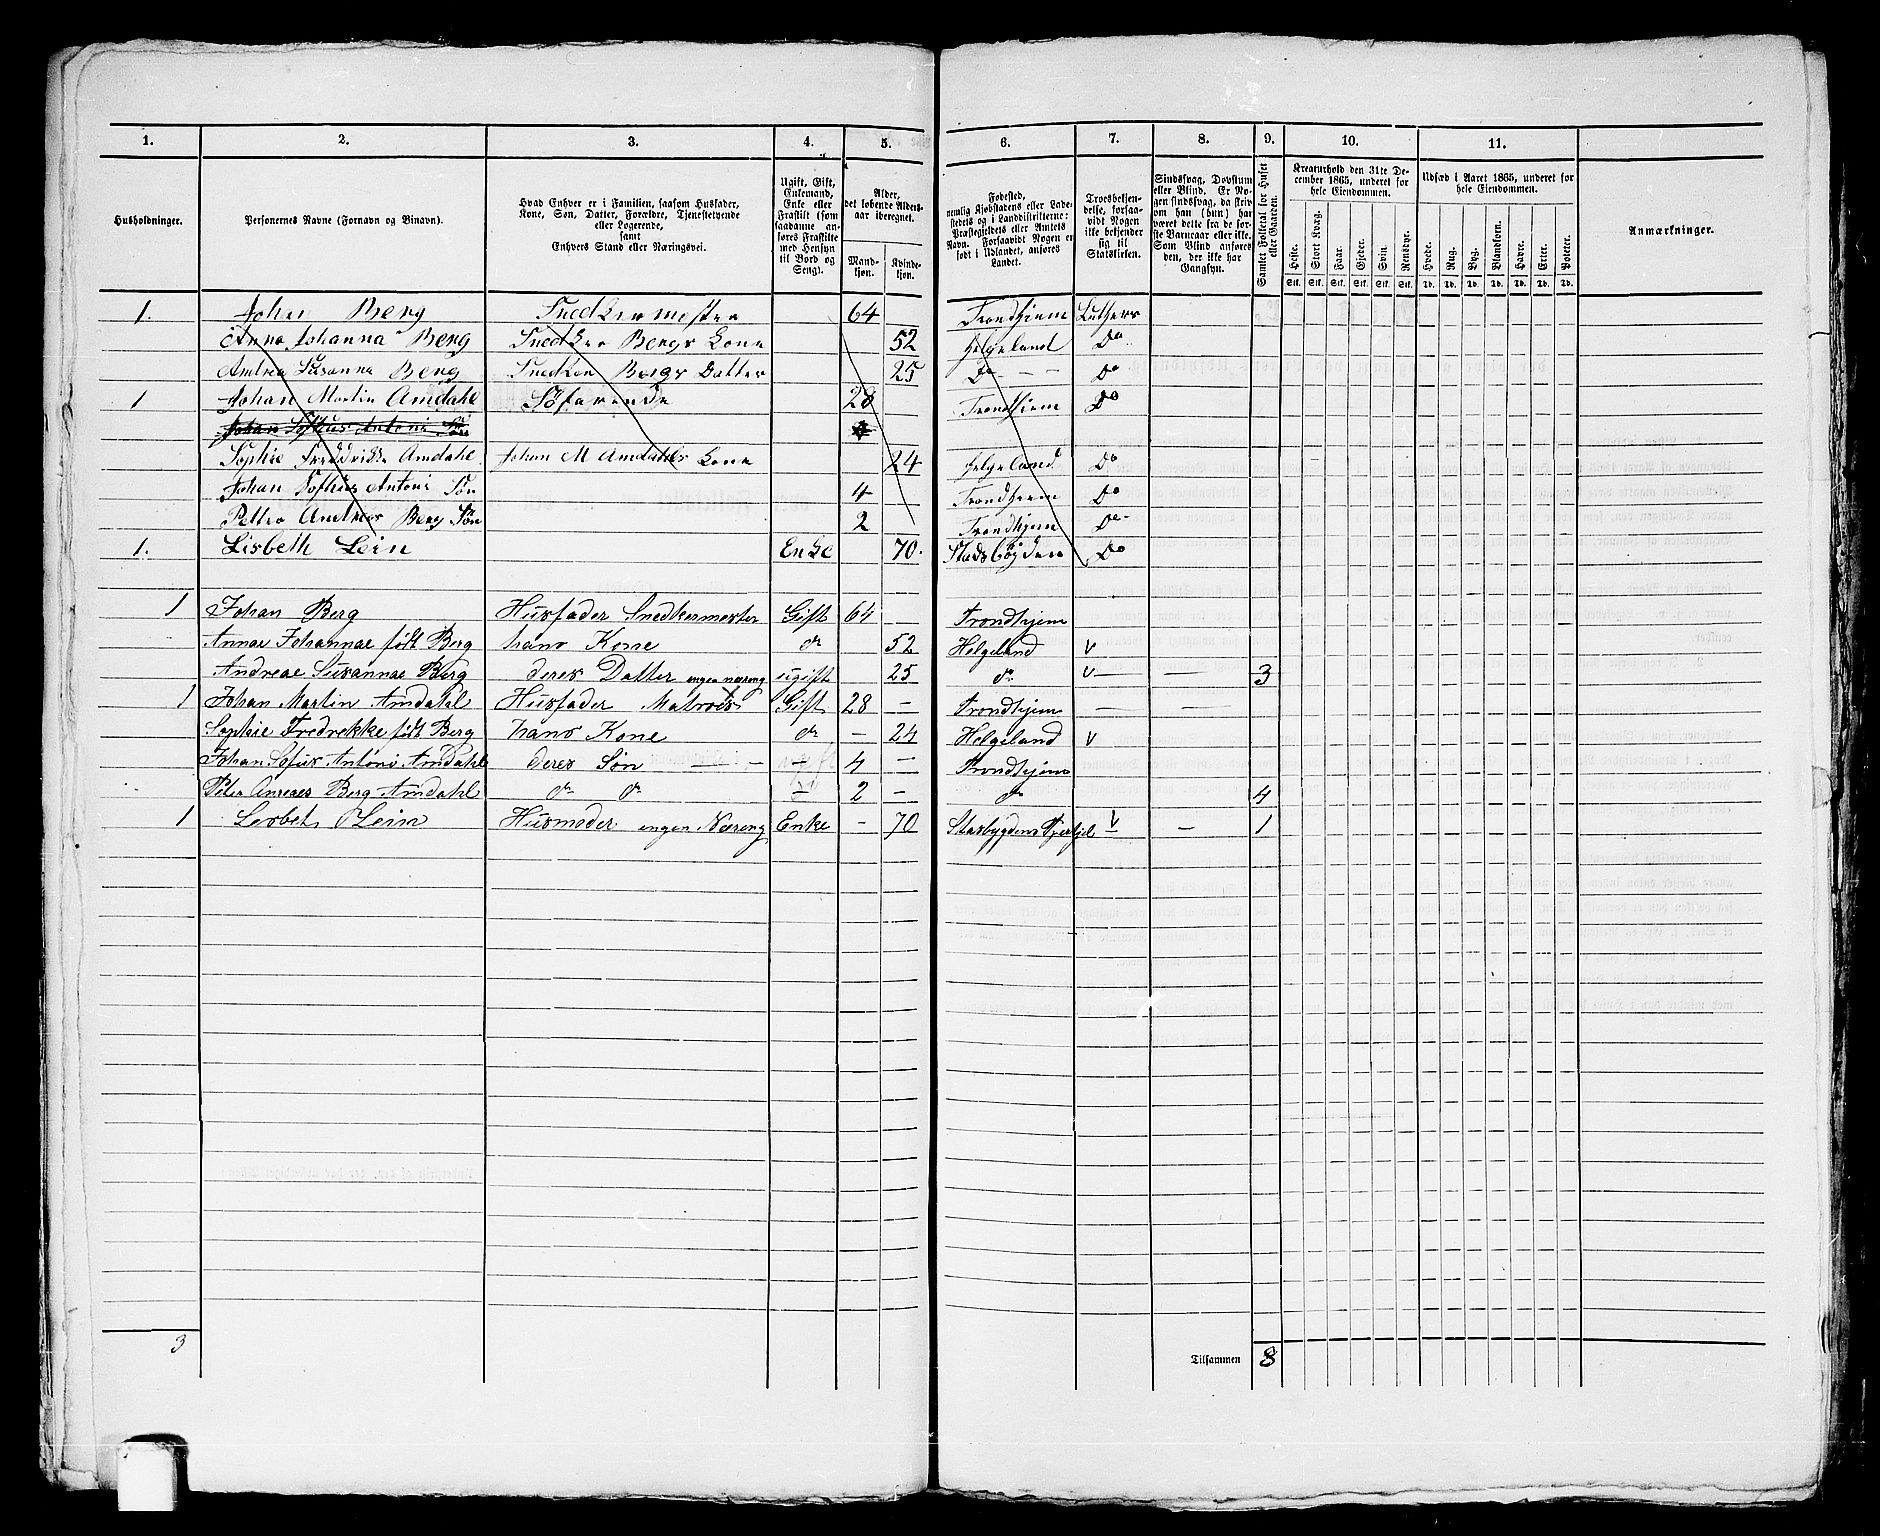 1. 2. 3. 4. 5. 6. 7. 8. 9. 10. 11.
Husholdninger.
Personernes Navne (Fornavn og Binavn).
Hvad Enhver er i Familien, saasom Husfader, Kone, Søn, Datter, Forældre, Tjenestetyende eller Logerende, samt Enhvers Stand eller Næringsvei.
Ugift, Gift, Enkemand, Enke eller Fraskilt (som saadanne anføres Fraskilte med Hensyn til Bord og Seng).
Alder, det løbende Aldersaar iberegnet.
Mandkjøn. Kvindekjøn.
Fødested, nemlig Kjøbstadens eller Ladestedets og i Landdistrikterne: Præstegjeldets eller Amtets Navn. Forsaavidt Nogen er født i Udlandet, anføres Landet.
Troesbekjendelse, forsaavidt Nogen ikke bekjender sig til Statskirken.
Sindssvag, Døvstum eller Blind. Er Nogen sindssvag, da skrives om han (hun) har været dette fra de første Barneaar eller ikke. Som Blind anføres den, der ikke har Gangsyn.
Samlet Folketal for Huset eller Gaarden.
Kreaturhold den 31te December 1865, underet for hele Eiendommen.
Heste. Stort Kvæg. Faar. Gjeder. Svin. Rensdyr.
Stk. Stk. Stk. Stk. Stk. Stk.
Udsæd i Aaret 1865, underet for hele Eiendommen.
Hvede. Rug. Byg. Blandkorn. Havre. Erter. Poteter.
Td. Td. Td. Td. Td. Td. Td.
Anmærkninger.
1. Johan Berg Snedkermester 64 Trondhiem Luthers
Anna Johanna Berg Snedker Bergs Kone 52 Helgeland Do
Andrea Susanna Berg Snedker Bergs Datter 25 Do - - Do
1 Johan Martin Amdahl Søfarende 28 Trondhiem Do
Johan Sofhus Antoni Søn
Sophie Fredrikke Amdahl Johan M Amdahls Kone 24 Helgeland Do
Johan Sofhus Antoni Søn 4 Trondhiem Do
Petter Andreas Berg Søn 2 Trondhjem Do
1. Lisbeth Lein Enke 70. Stadsbøgden Do
1 Johan Berg Husfader Snedkermester Gift 64 - Trondhjem
Annae Johannae født Berg hans Kone do - 52 Helgeland v
Andreae Susannae Berg deres Datter ingen næreng ugift 25 do v - - 3
1 Johan Martin Amdahl Husfader Matros Gift 28 - Trondhjem - -
Sophie Fredrekke født Berg hans Kone do - 24 Helgeland v
Johan Sofus Antoni Amdahl deres Søn - - - 4 - Trondhjem
Peter Anreaes Berg Amdahl do do - 2 - do 4
1 Lesbet Lein Husmoder ingen Næreng Enke - 70 Stasbygdens v - 1
3
Tilsammen 8